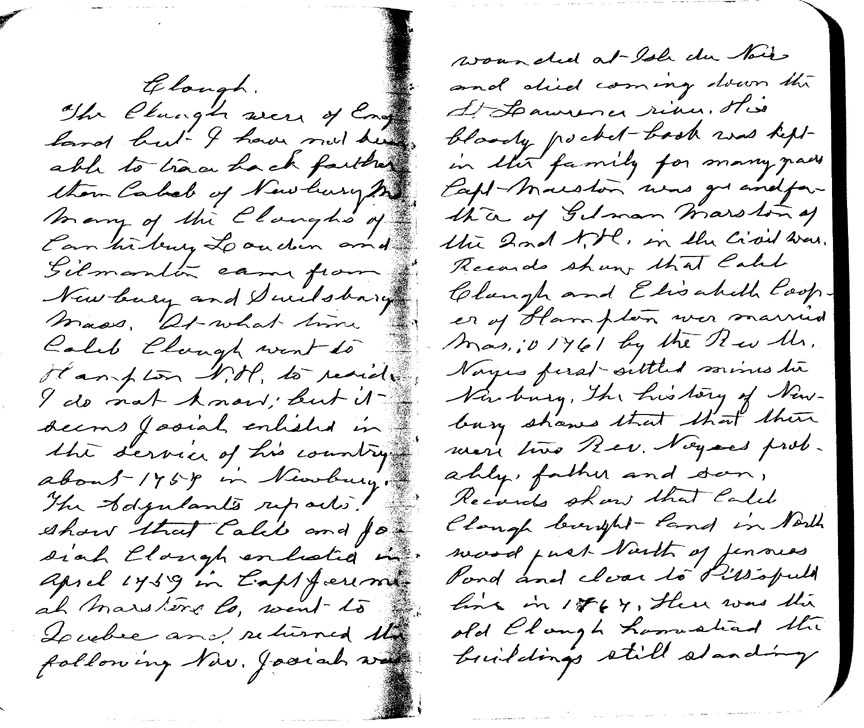 Clough.
The Clough were of Eng
land but I have not been
able to trace back farther
them Caleb of Newbury M
Many of the Cloughs of
Canterbury Loudin and
Gilmanton came from
Newbury and
Mass. At what time
Caleb Clough went to
Hampton N.H. to reside
I do not know; but it
seems Josiah enlisted in
the service of his country
about 1757 in Newbury.
The Adjulants reports.
show that Caleb and Jo-
siah Clough enlisted in
April 1759 in Capt Jeremi-
ah Marstons Co, went to
Quebec and, returned the
following Nov. Josiah was
wounded at Isle du Noix
and died coming down the
St. Lawrence river. His
bloody pocket-book was kept
in the family for many years
Capt Marston was grandfa-
ther of Gilman Marston of
the 2nd N.H. in the Civil War.
Records show that Caleb
Clough and Elisabeth Coop-
er of Hampton wer married
1761 by the Rev Mr.
Noyes first settled ministe
Newbury. The history of New-
bury shows that that there
were two Rev. Noyses prob-
ably, father and son,
Records show that Caleb
Clough bought land in North
wood just North of Jenness
Pond and close to Pittsfield
line in 1767. Here was the
old Clough homestead the
buildings still standing